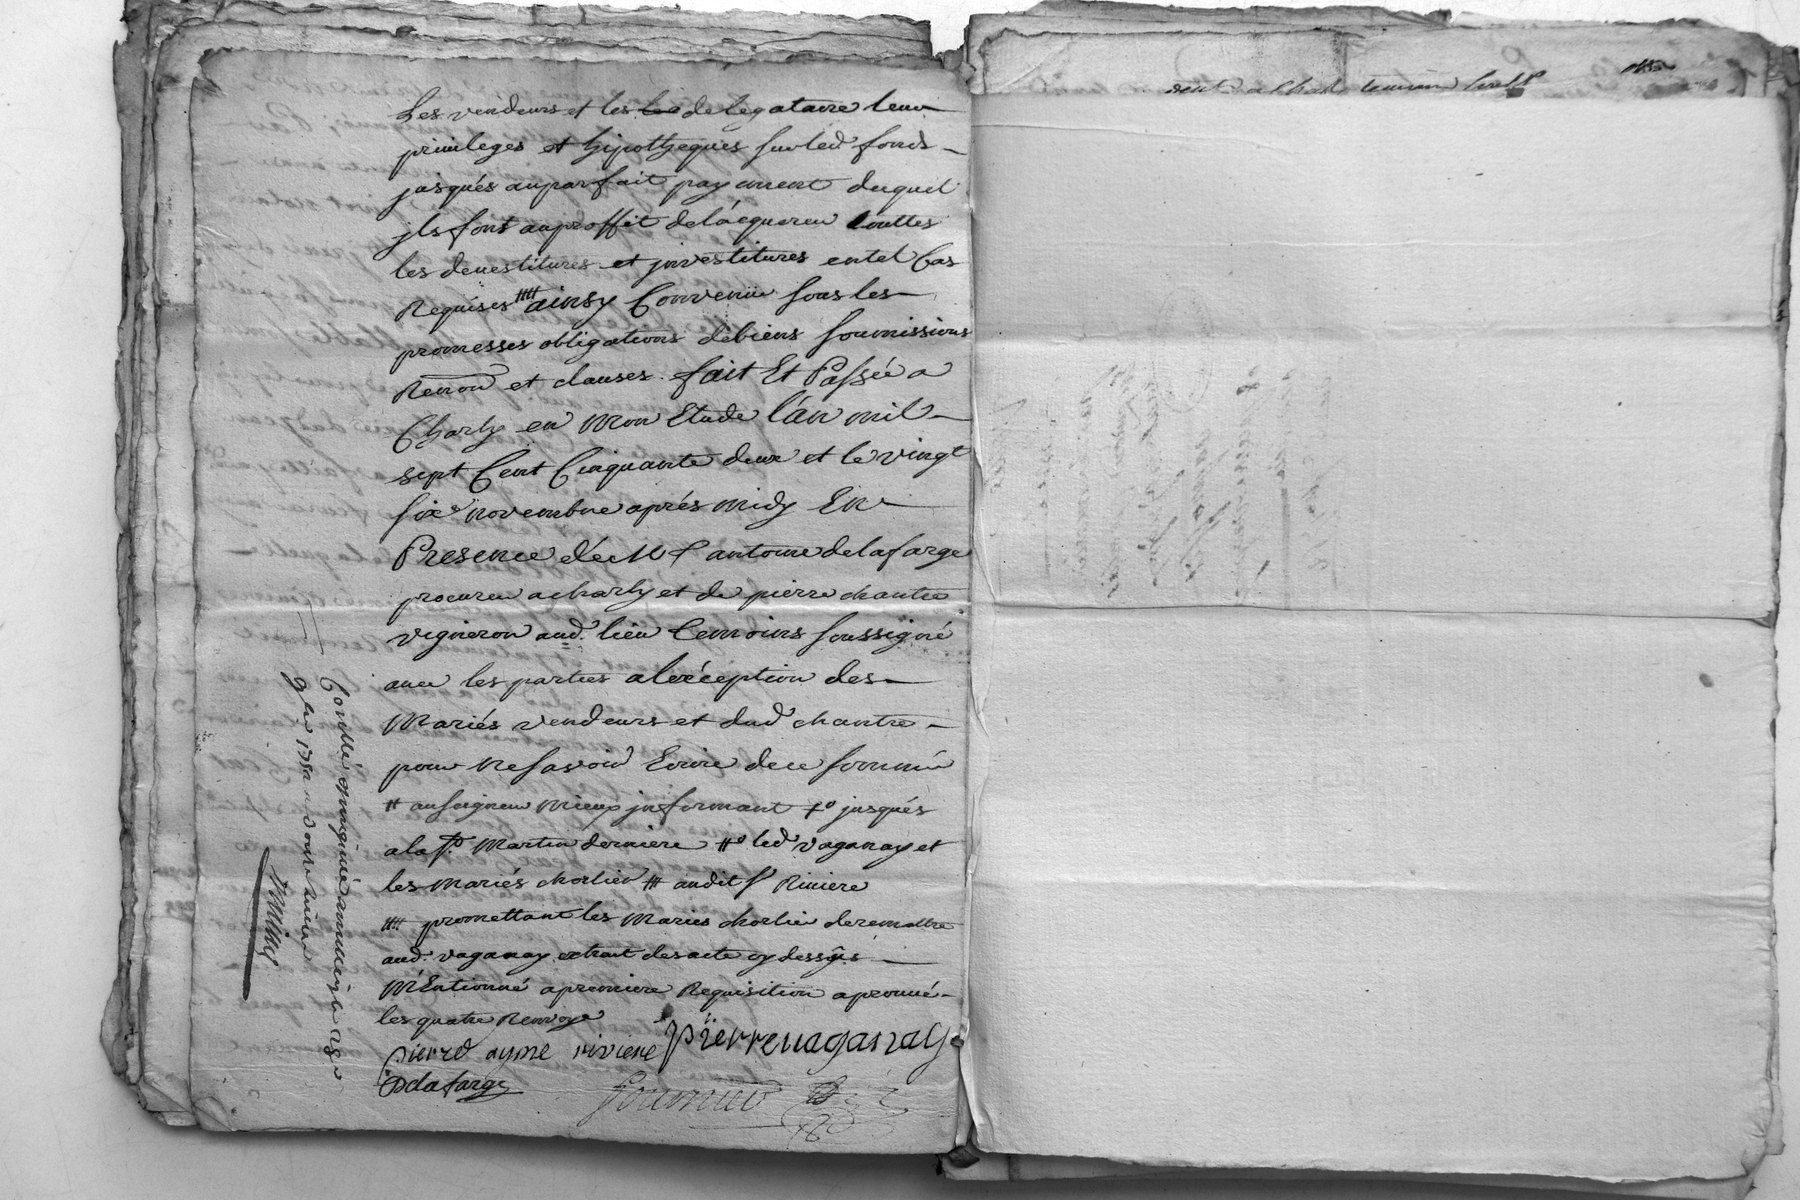 les vendeurs et les delegataire leur
privileges et hipotheques surled fonds
jusqués auparfait payement duquel
jls font auproffit delácquereur touttes
les devestitures et jnvestitures entel Cas
Requises #### ainsy Convenu sous les
promesses obligations debiens soumissions
Renon et clauses. fait Et Passée a
Charly en mon Etude l'an mil
sept Cent Cinquante deux et le vingt
six novembre aprés midy En
Presence de Me antoine delafarge
procureur acharly et de pierre chantre
vigneron aud. lieu temoins soussigné
avec les parties aléxception des
Mariés vendeurs et dud chantre
pour Nesavoir Ecrire dece sommé
# auseigneur mieux jnformant #o jusqués
alast. Martin derniere ## led vaganay et
les mariés chorlier ### audit sr Riviere
#### promettant les mariés chorlier deremettre
aud. vaganay extrait desacte cy dessus
Mentionné apremiere Requisition aprouvé
les quatre Renvoys
pierre ayme riviere pierre vaganay
delafarge
9bre 1752